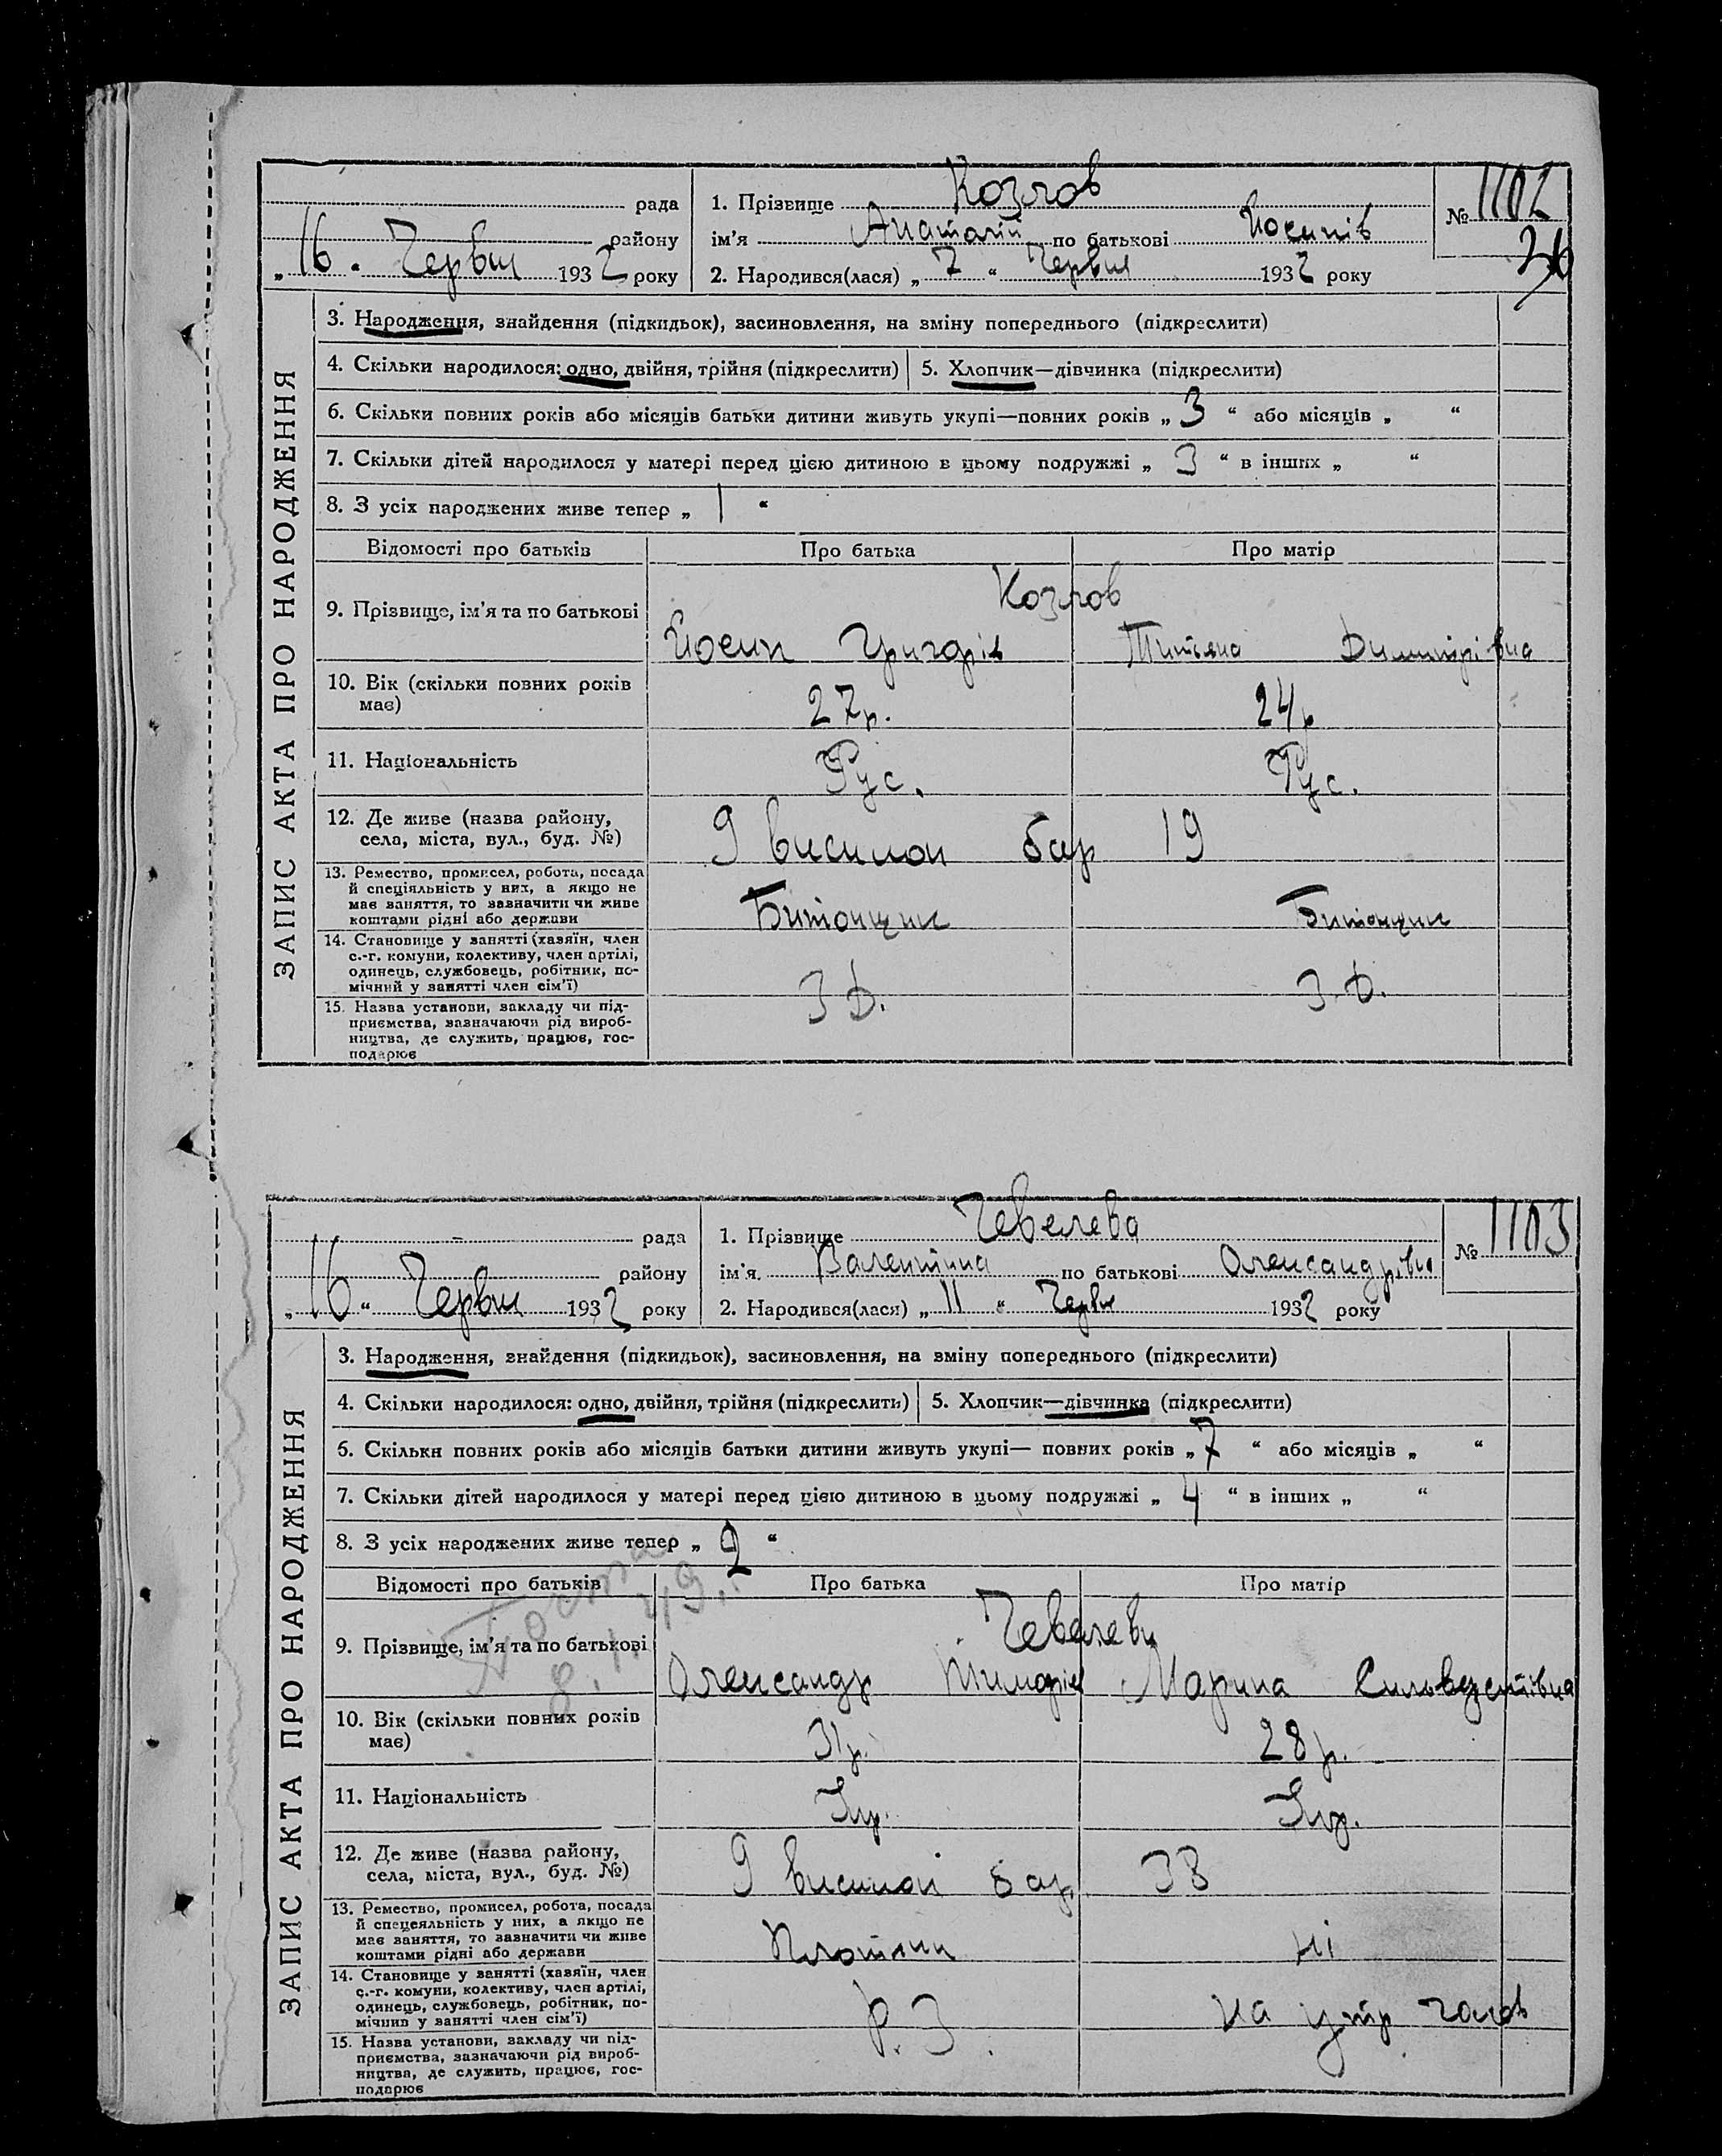 рада
1. Прізвище Козлов
№ 1102
району
ім'я Анатолій по батькові Йосипів
36
„ 16 “ Червня 1932 року
2. Народився(лася) „ 7 “ Червня 1932 року
ЗАПИС АКТА ПРО НАРОДЖЕННЯ
3. Народження, знайдення (підкидьок), засиновлення, на зміну попереднього (підкреслити)
4. Скільки народилося: одно, двійня, трійня (підкреслити)
5. Хлопчик—дівчинка (підкреслити)
6. Скільки повних років або місяців батьки дитини живуть укупі—повних років „ 3 “ або місяців „ “
7. Скільки дітей народилося у матері перед цією дитиною в цьому подружжі „ 3 “ в інших „ “
8. З усіх народжених живе тепер „ 1 “
Відомості про батьків
Про батька
Про матір
9. Прізвище, ім'я та по батькові
Козлов
Йосип Григорів
Титяна Димитрівна
10. Вік (скільки повних років має)
27р.
24р
11. Національність
Рус.
Рус.
12. Де живе (назва району,
села, міста, вул., буд. №)
9 виселок бар 19
13. Ремество, промисел, робота, посада
й спеціяльність у них, а якщо не
має заняття, то зазначити чи живе
коштами рідні або держави
Битонщик
Битонщик
14. Становище у занятті (хазяїн, член
с.-г. комуни, колективу, член артілі,
одинець, службовець, робітник, по-
мічний у занятті член сім'ї)
З Д.
З. Д.
15. Назва установи, закладу чи під-
приємства, зазначаючи рід вироб-
ництва, де служить, працює, гос-
подарює
рада
1. Прізвище Чевелева
№ 1103
району
ім'я Валентина по батькові Олександрівна
„ 16 “ Червня 1932 року
2. Народився(лася) „ 11 “ Червня 1932 року
ЗАПИС АКТА ПРО НАРОДЖЕННЯ
3. Народження, знайдення (підкидьок), засиновлення, на зміну попереднього (підкреслити)
4. Скільки народилося: одно, двійня, трійня (підкреслить)
5. Хлопчик—дівчинка (підкреслити)
6. Скільки повних років або місяців батьки дитини живуть укупі— повних років „ 7 “ або місяців „ “
7. Скільки дітей народилося у матері перед цією дитиною в цьому подружжі „ 4 “ в інших „ “
8. З усіх народжених живе тепер „ 2 “
Відомості про батьків
Про батька
Про матір
9. Прізвище, ім'я та по батькові
Чевелеви
Олександр
Марина Сильверстівна
10. Вік (скільки повних років
має)
31р.
28р.
11. Національність
Укр.
Укр.
12. Де живе (назва району,
села, міста, вул., буд. №)
9 виселок бар 38
13. Ремество, промисел, робота, посада
й спецеяльність у них, а якщо не
має заняття, то зазначити чи живе
коштами рідні або держави
Плотник
Ні
14. Становище у занятті (хазяїн, член
с.-г. комуни, колективу, член артілі,
одинець, службовець, робітник, по-
мічнив у занятті член сім'ї)
Р. З.
на утр чолов
15. Назва установи, закладу чи під-
приємства, зазначаючи рід вироб-
ництва, де служить, працює, гос-
подарює